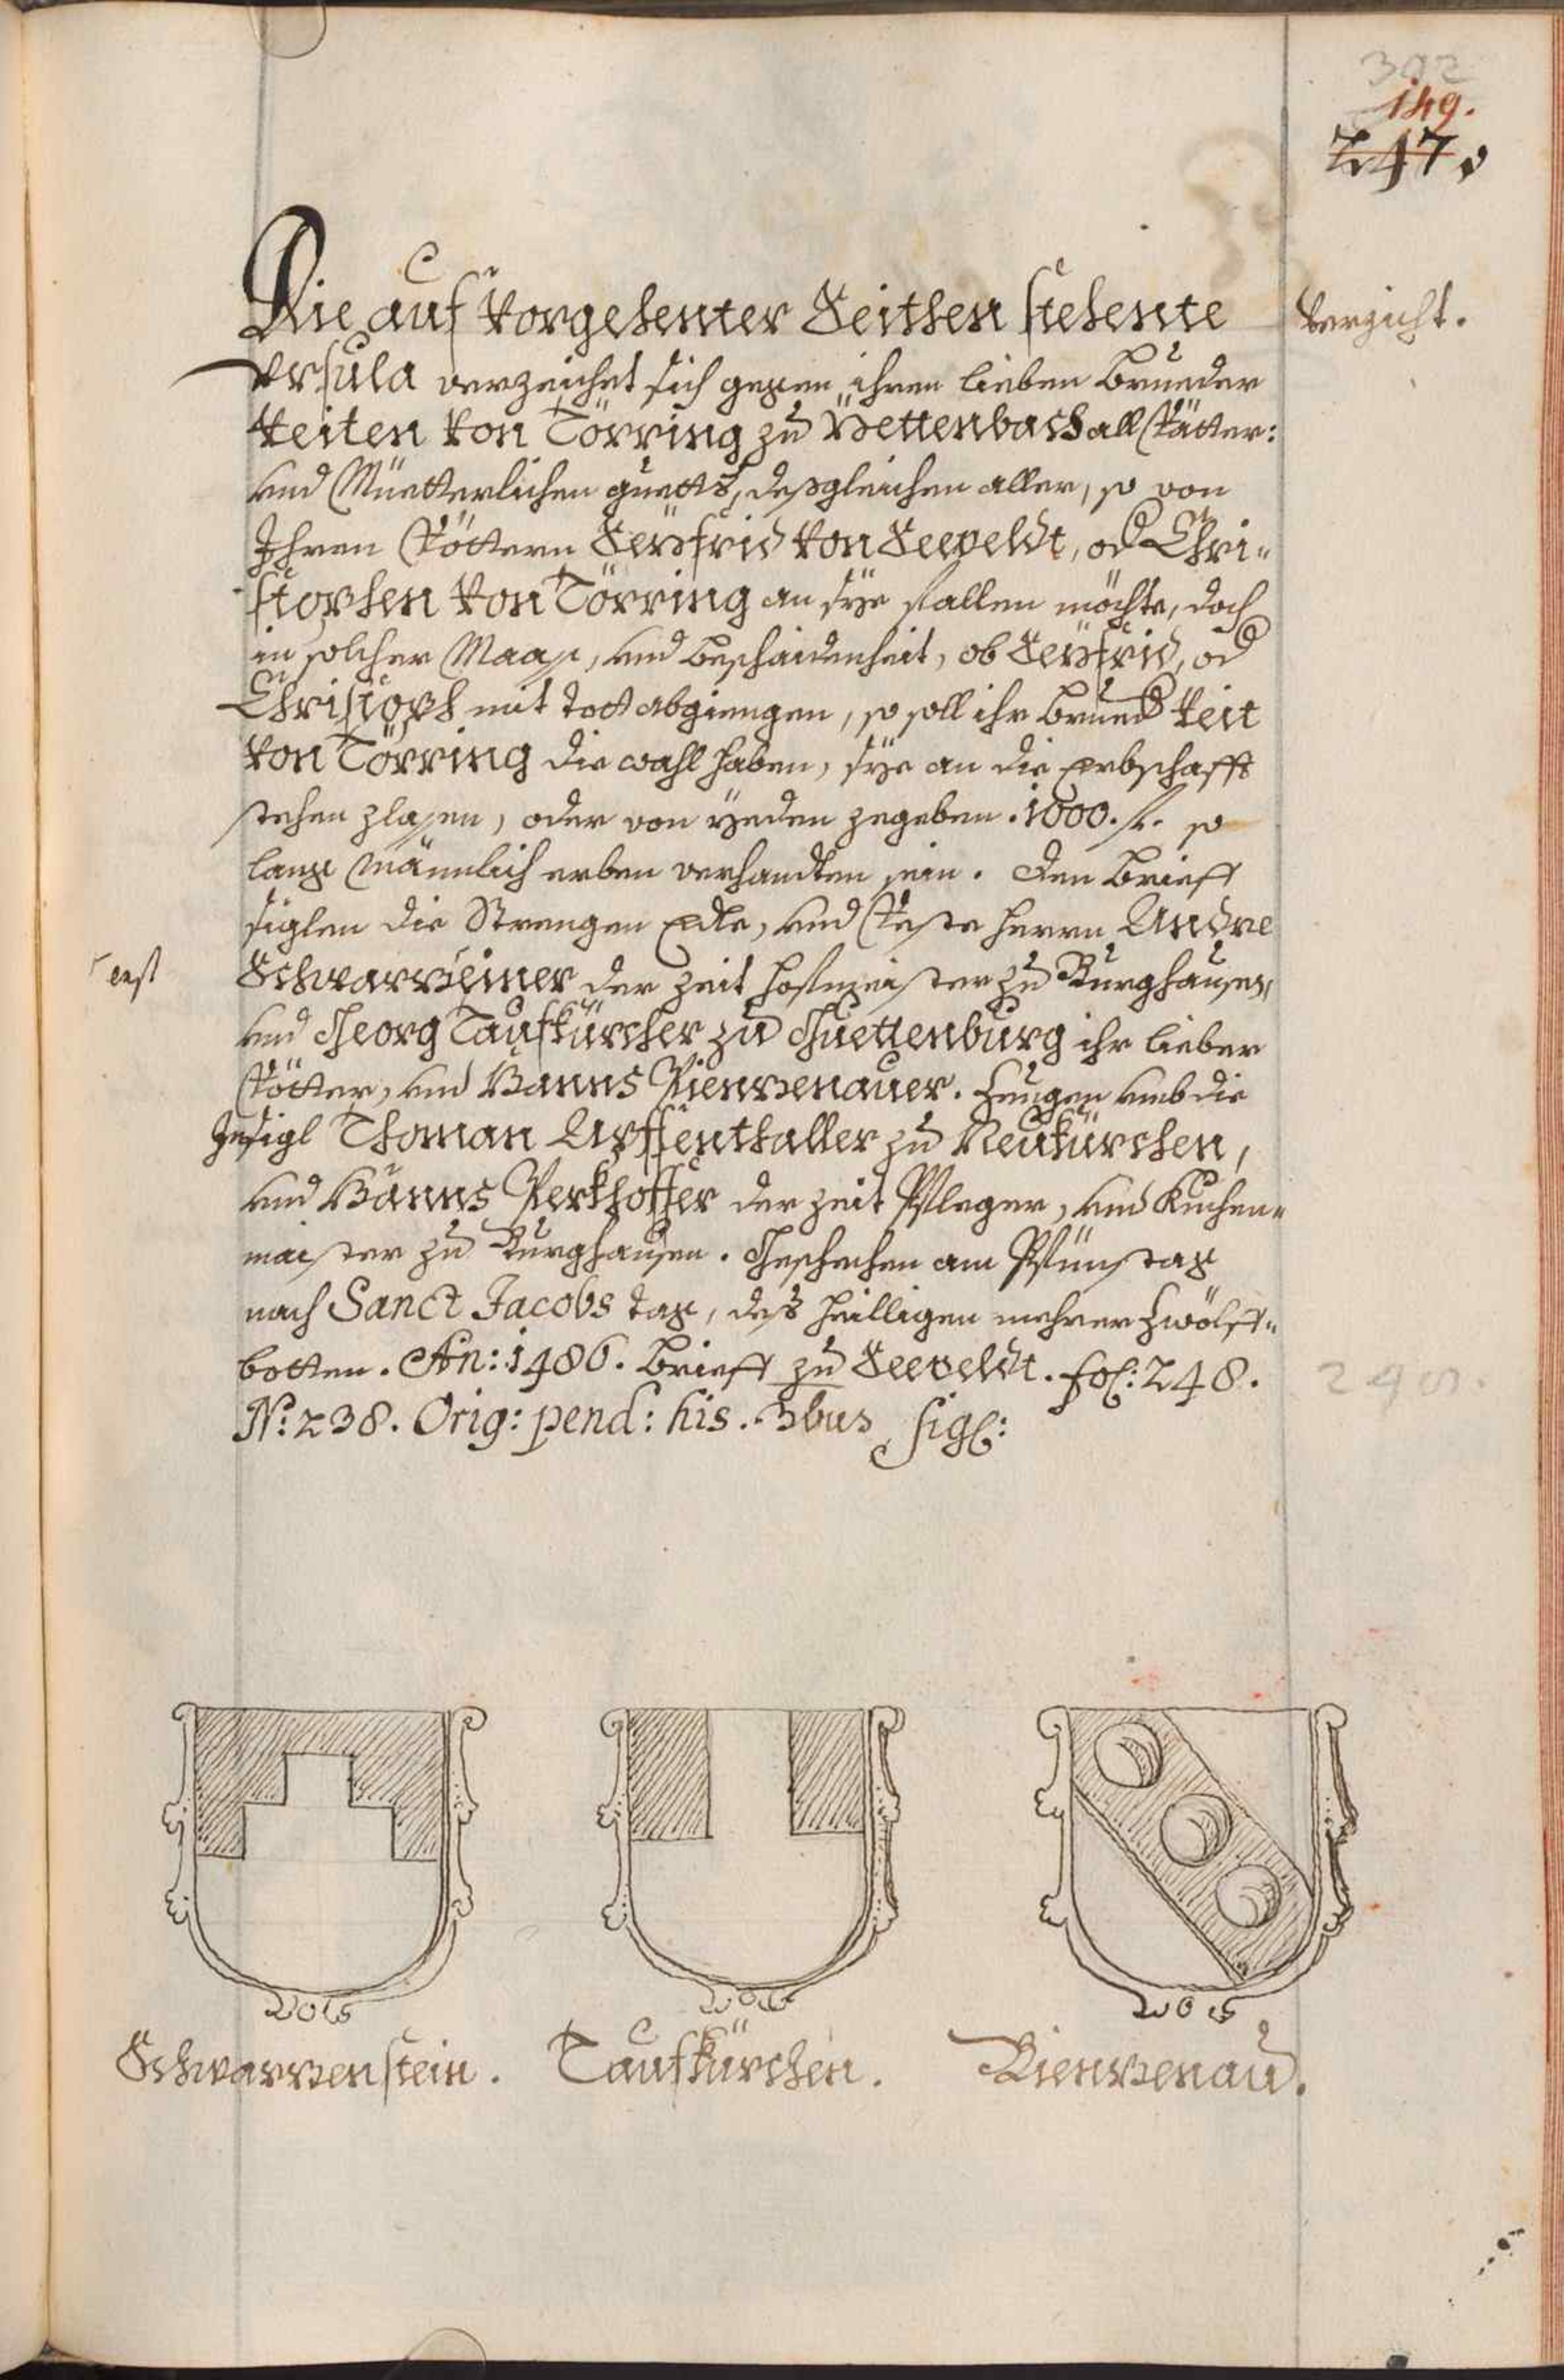 302
149.
247.
Die auf vorgehenter Seithen stehente
Verzicht.
Vrsula verzeichet sich gegen ihren lieben Brueder
Veiten von Törring zu Pettenbach all Vätter:
und Müetterlichen guetts, deßgleichen aller, so von
Ihren Vöttern Seyfrid von Seeveldt, od Chri„
stophen von Törring an sÿe fallen möchte, doch
in solcher Maaß, und beschaidenheit, ob Seyfrid, od
Christoph mit tott abgiengen, so soll ihr Brued Veit
von Törring die wahl haben, sÿe an die Erbschafft
stehen zlaßen, oder von yeden zegeben .1000. fl. so
lang Männlich erben verhandten sein. Den Brieff
siglen die Strengen Edle, und Veste herrn Andre
Schwarzeiner der zeit hofmeister zu Burghausen,
und Georg Taufkürcher zu Guettenburg ihr lieber
Vötter, und Hanns Pienzenauer. Zeugen umb die
Insigl Thoman Apffenthaller zu Neukürchen,
und Hanns Perkhoffer der zeit Pfleger, und Kuchen„
maister zu Burghausen. Geschechen am Pfünstag
nach Sanct Jacobs tag, deß heilligen mehrer Zwölf„
botten. An: 1486. Brieff zu Seeveldt. fol: 248.
248.
N: 238. Orig: pend: his. 3bus sigl:
Schwarzenstein.
Taufkürchen.
Pienzenau.